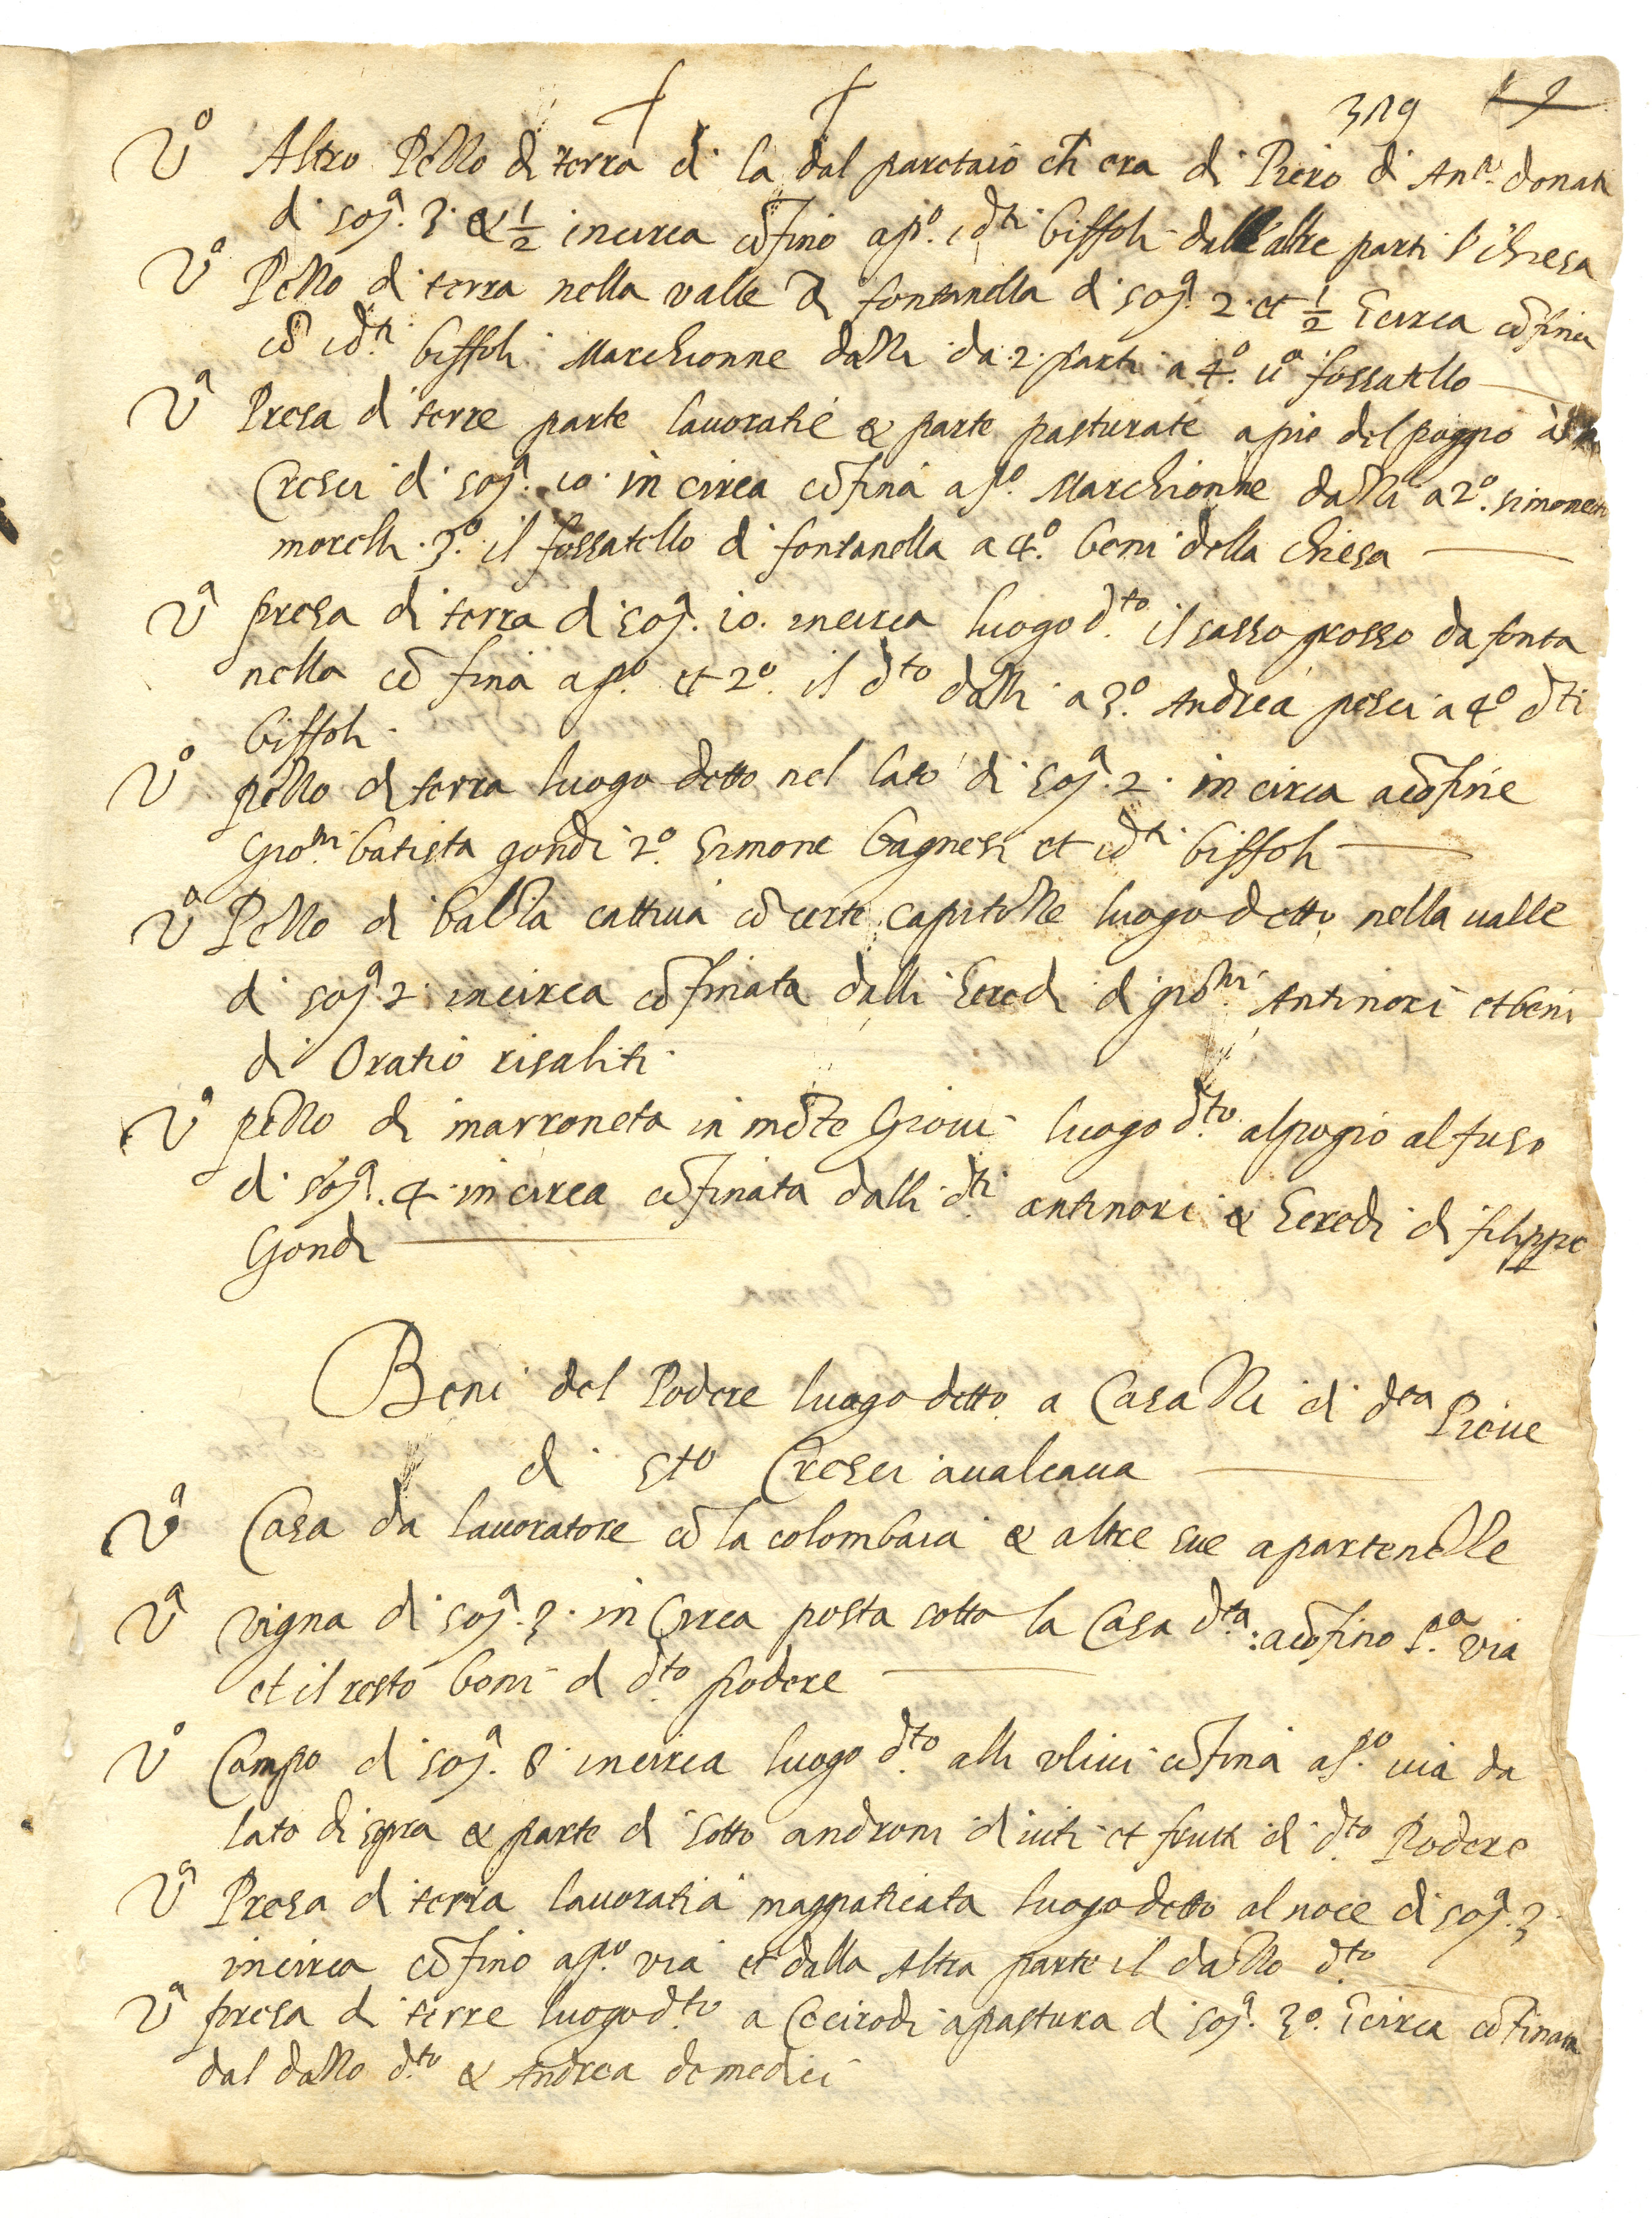 319
Vº Altro Pezzo di terra di la dal paretaio ch era di Piero di Anº donati
di soª. 3 & 1/2 incirca cōfino apº. i dti biffoli dalle altre parti l'chiesa
Vº Pezzo di terra nella valle di fontanella di soª. 2 et 1/2 ī circa cōfina
cō i dti biffoli Marchionne dazzi da 2 parti a 4º. uº fossatello
Vª Presa di terre parte lauoratie & parte pasturate apie del poggio
Cresci di soª. 10 in circa cōfina apº. Marchionne dazzi a 2º. simone
morelli 3º. il fossatello di fontanella a 4º. beni della chiesa
Vª presa di terra di soª. 10. incirca luogo dto il sasso grosso da fonta
nella cō fina apº et 2º. il dto dazzi a 3º. Andrea pesci a 4º dti
biffoli
Vº pezzo di terra luogo detto nel lato di soª 2 in circa acōfine
Giomi batista gondi 2º. Simone bagnesi et i dti biffoli
Vº Pezzo di balza cattiua cō certe capitozze luogo detto nella ualle
di soª 2 incirca cōfinata dalli Eredi di giomi Antinori et beni
di Oratio risaliti
Vº pezzo di marroneta in mōte Gioui luogo dto alpogio al fuso
di soª. 4 in circa cōfinata dalli dti antinori & Eredi di filippo
Gondi
Beni del Podere luogo detto a Casa Zzi di dea Pieue
di Sto Cresci aualcaua
Vª Casa da lauoratore cō la colombaia & altre sue apartenezze
Vª vigna di soª. 3 in Circa posta sotto la Casa dta: acōfino Pª via
et il resto beni di dto podere
Vº Campo di soª. 8 incirca luogo dto alli vliui cōfina apº uia da
lato di sopra & parte di sotto androni di uiti et frutti di dto Podere
Vª Presa di terra lauoratia maggaticata luogo detto al noce di soª. 3
incirca cōfino apº via et dalla Altra parte il dazzo dto
Vª presa di terre luogo dto a apastura di soª. 30. ī circa cōfinata
dal dazzo dto & Andrea de medici